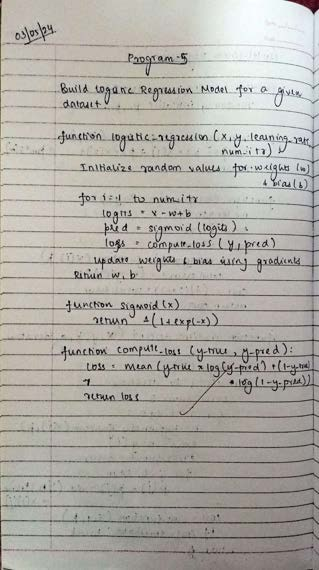 03/05/24
Program-5
Build Logistic Regression Model for a given
dataset.
function logistic-regression (x, y, learning-rate,
num-itr)
Initialize random values for weights (w)
& bias (b)
for i=1 to num-itr
logits = x - w+b
pred = sigmoid (logits)
loss = compute-loss (y, pred)
update weights & bias using gradients
return w, b
function sigmoid (x)
return 1(1+exp(-x))
function compute-loss (y-true, y-pred):
loss = mean (y-true * log(y-pred) + (1-y-true)
* log(1-y-pred))
return loss